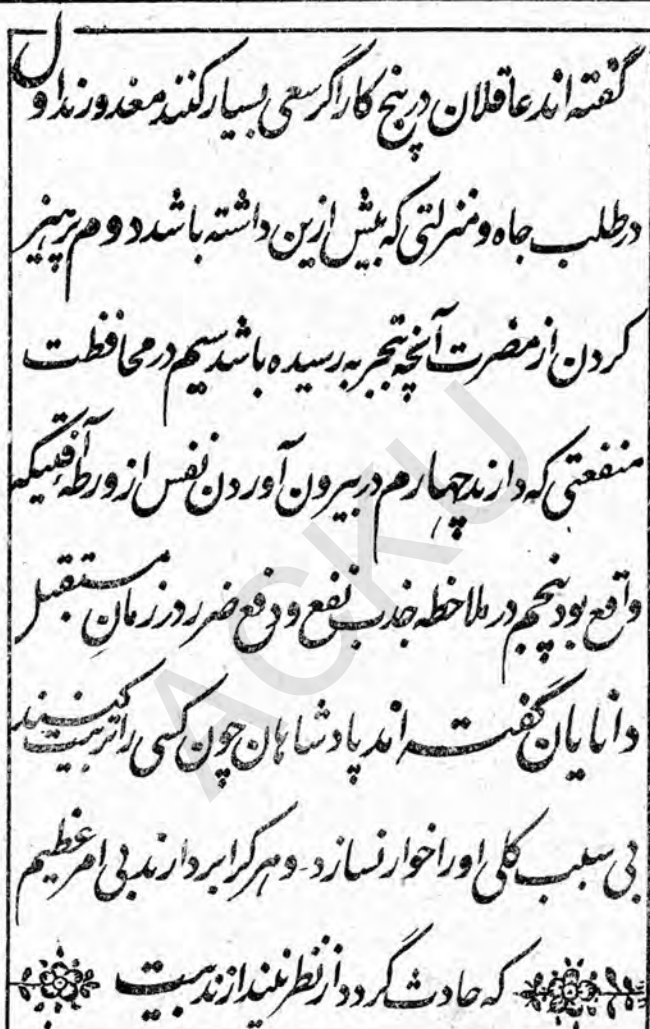 گفته اند عاقلان در پنج کار اگر سعی بسیار کنند معذورند اول
در طلب جاه و منزلتی که پیش ازین داشته باشد دوم پرهیز
کردن از مضرت آنچه بتجربه رسیده باشد سیم در محافظت
منفعتی که دارند چهارم در بیرون آوردن نفس از ورطه آفتیکه
واقع بود پنجم در ملاحظه جذب نفع و دفع ضرر در زمانِ مستقبل
دانایان گفته اند پادشاهان چون کسی را تربیت کنند
بی سبب کلی او را خوار نسازد و هر کرا بردارند بی امر عظیم
که حادث گردد از نظر نیندازند بیت
ACKU